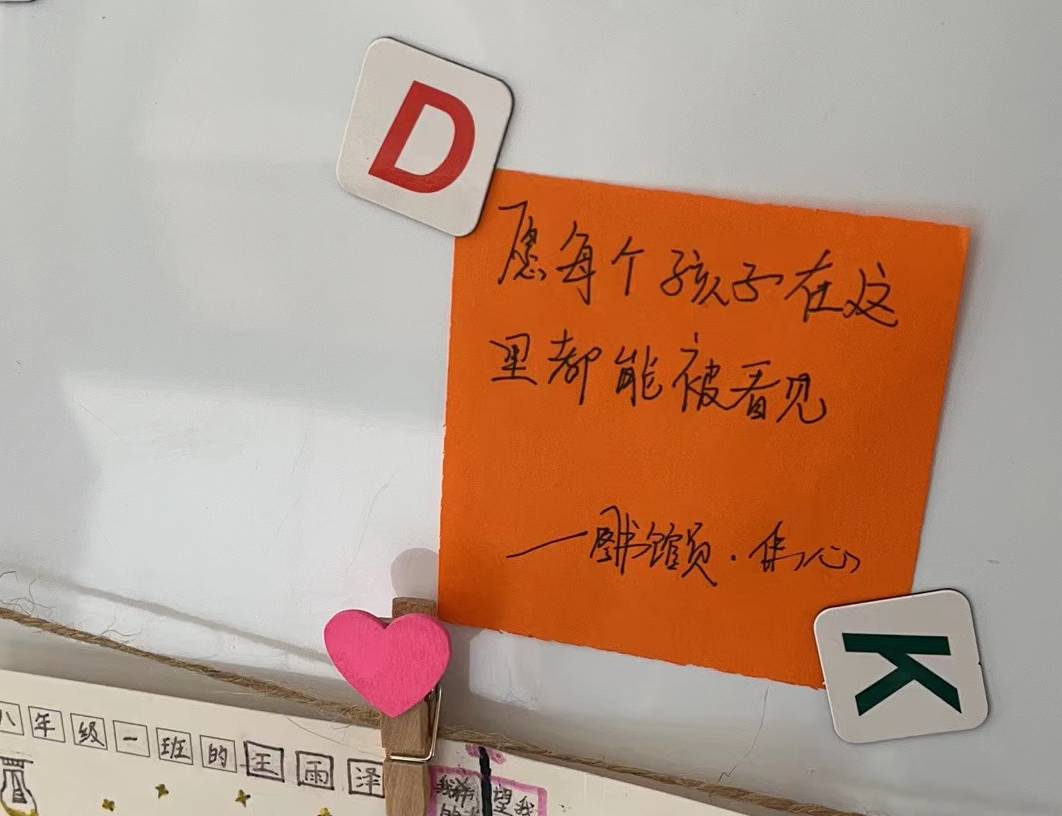 D
愿每个孩子在这
里都能被看见
—图书馆员·隽心
K
八年级一班的王雨泽
我希望我